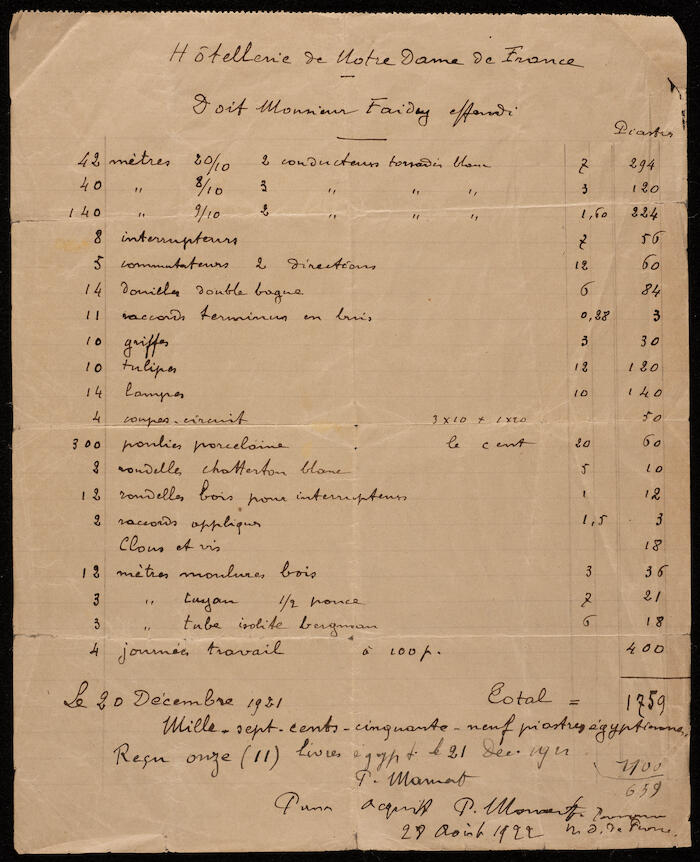 Hôtellerie de Notre Dame de France
Doit Monsieur Faidy effendi
Piastres
42 mètres 20/10 2 conducteurs torsadés blanc 7 294
40 " 8/10 3 " " " 3 120
140 " 9/10 2 " " " 1,60 224
8 interrupteurs 7 56
5 commutateurs 2 directions 12 60
14 douilles double bague 6 84
11 raccords terminus en buis 0,28 3
10 griffes 3 30
10 tulipes 12 120
14 lampes 10 140
4 coupes-circuit 3x10 + 1x20 50
300 poulies porcelaine le cent 20 60
2 rondelles chatterton blanc 5 10
12 rondelles bois pour interrupteurs 1 12
2 raccords appliques 1,5 3
Clous et vis 18
12 mètres moulures bois 3 36
3 " tuyau 1/2 pouce 7 21
3 " tube isolite bergman 6 18
4 journées travail à 100 p. 400
Le 20 Décembre 1921 Total = 1759
Mille-sept-cents-cinquante-neuf piastres égyptiennes.
Reçu onze (11) livres égypt. le 21 Dec. 1921 1100
P. Mamert 659
Pour acquit P. Mamert
28 Août 1922 N. D. de France